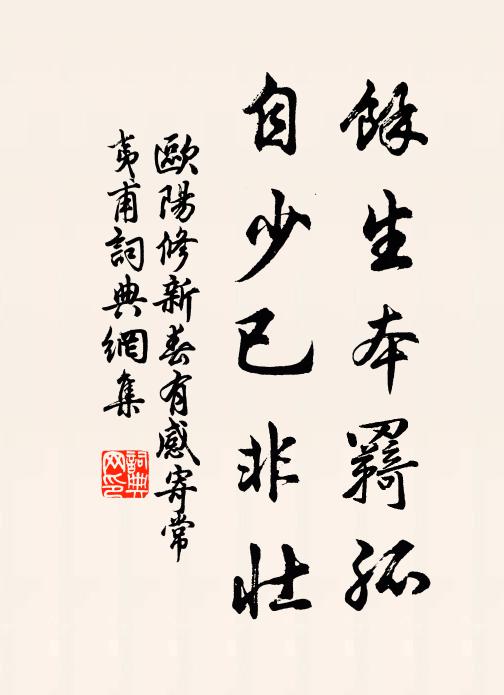 餘生本羈孤
自少已非壯
歐陽修新春有感寄常
夷甫詞典網集
詞典
网印